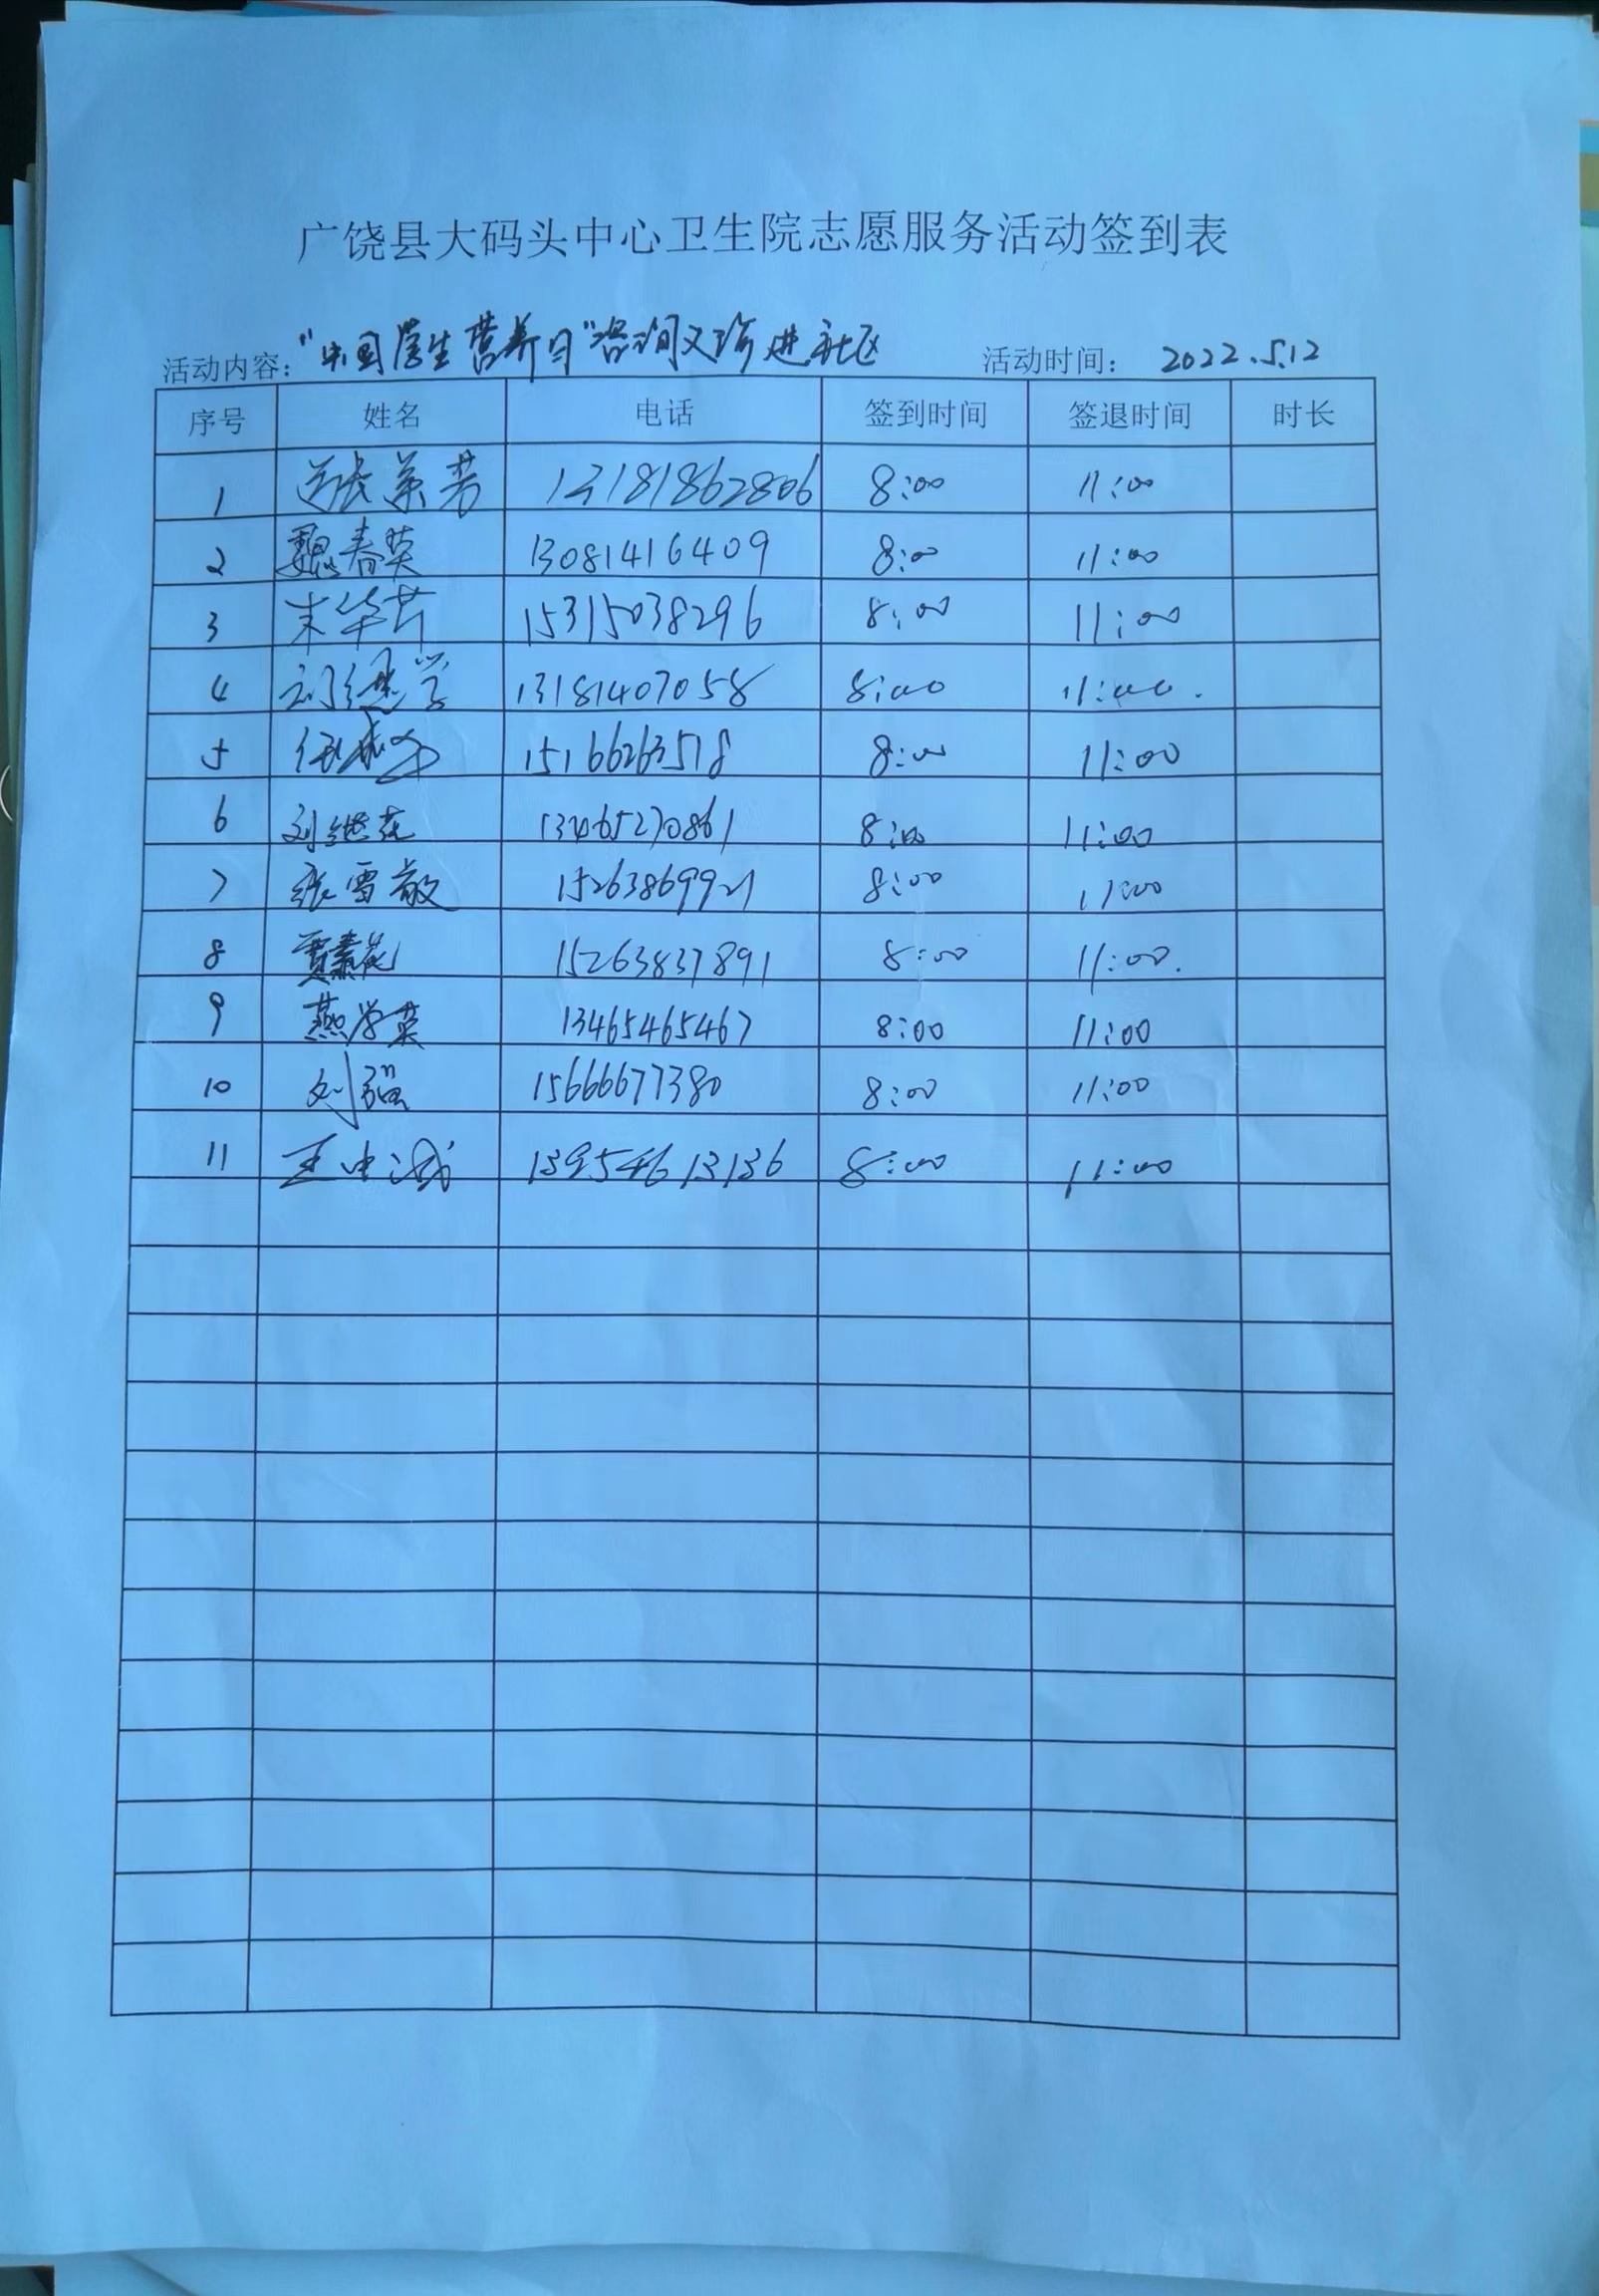 广饶县大码头中心卫生院志愿服务活动签到表
活动内容："中国学生营养日"咨询义诊进社区 活动时间：2022.5.12
序号 姓名 电话 签到时间 签退时间 时长
1 13181862806 8:00 11:00
2 魏春英 13081416409 8:00 11:00
3 15315038296 8:00 11:00
4 13181407058 8:00 11:00.
5 15166263518 8:00 11:00
6 刘继花 13465270861 8:00 11:00
7 张雪敏 15263869921 8:00 11:00
8 贾素花 15263837891 8:00 11:00.
9 燕学英 13465465467 8:00 11:00
10 刘强 15666677380 8:00 11:00
11 王中诚 13954613136 8:00 11:00